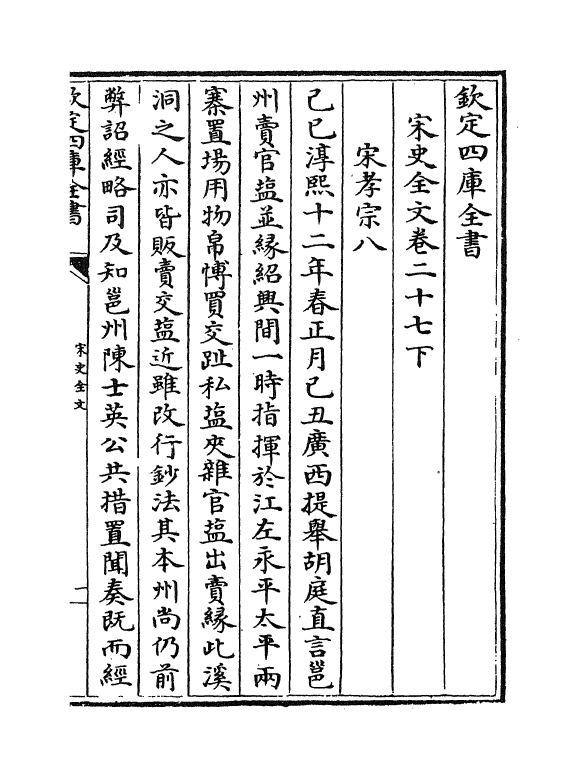 欽定四庫全書
宋史全文卷二十七下
宋孝宗八
己巳淳熙十二年春正月己丑廣西提舉胡庭直言邕
州賣官塩並緣紹興間一時指揮於江左永平太平兩
寨置場用物帛愽買交趾私塩夾雜官塩出賣緣此溪
洞之人亦皆販賣交塩近雖改行鈔法其本州尚仍前
弊詔經略司及知邕州陳士英公共措置聞奏既而經
欽定四庫全書
宋史全文